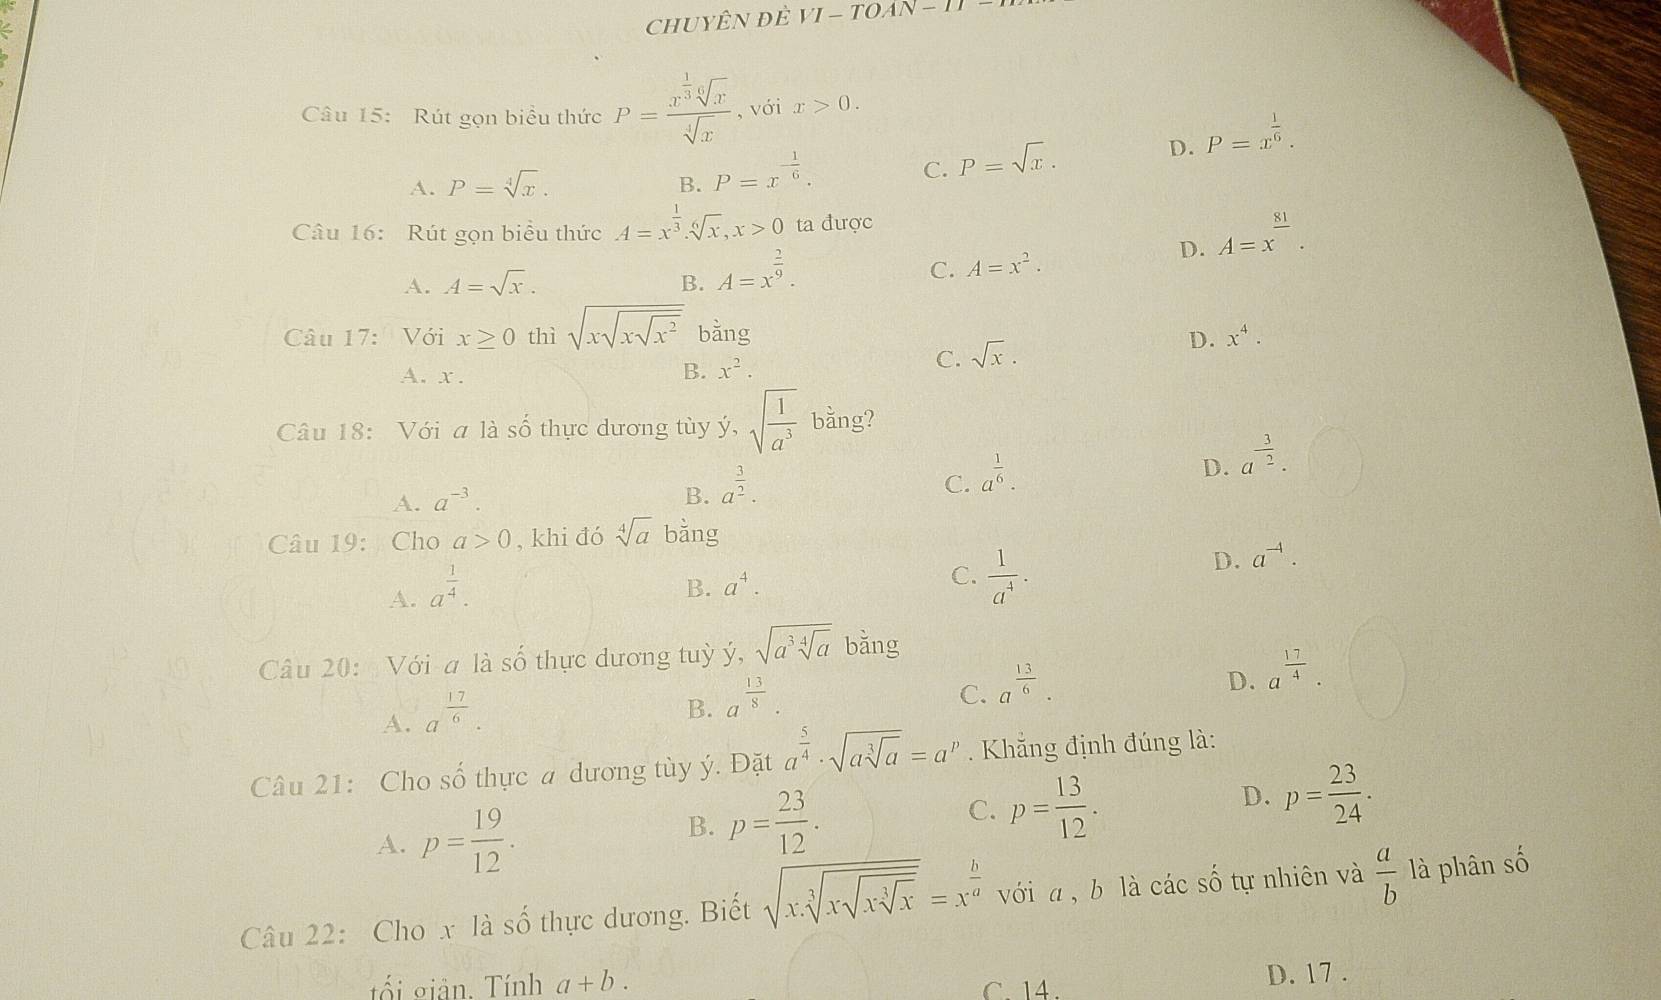 CHUYÊN ĐỀ VI – TOÁN – 11 –
Câu 15: Rút gọn biểu thức $P = \frac{x^{\frac{1}{3}}\sqrt[6]{x}}{\sqrt[4]{x}}$, với $x > 0$.
A. $P = \sqrt[4]{x}$. B. $P = x^{-\frac{1}{6}}$. C. $P = \sqrt{x}$. D. $P = x^{\frac{1}{6}}$.
Câu 16: Rút gọn biểu thức $A = x^{\frac{1}{3}}.\sqrt[6]{x}, x > 0$ ta được
A. $A = \sqrt{x}$. B. $A = x^{\frac{2}{9}}$. C. $A = x^2$. D. $A = x^{\underline{81}}$.
Câu 17: Với $x \geq 0$ thì $\sqrt{x\sqrt{x\sqrt{x^2}}}$ bằng
A. $x$. B. $x^2$. C. $\sqrt{x}$. D. $x^4$.
Câu 18: Với $a$ là số thực dương tùy ý, $\sqrt{\frac{1}{a^3}}$ bằng?
A. $a^{-3}$. B. $a^{\frac{3}{2}}$. C. $a^{\frac{1}{6}}$. D. $a^{-\frac{3}{2}}$.
Câu 19: Cho $a > 0$, khi đó $\sqrt[4]{a}$ bằng
A. $a^{\frac{1}{4}}$. B. $a^4$. C. $\frac{1}{a^4}$. D. $a^{-4}$.
Câu 20: Với $a$ là số thực dương tuỳ ý, $\sqrt{a^3\sqrt[4]{a}}$ bằng
A. $a^{\frac{17}{6}}$. B. $a^{\frac{13}{8}}$. C. $a^{\frac{13}{6}}$. D. $a^{\frac{17}{4}}$.
Câu 21: Cho số thực $a$ dương tùy ý. Đặt $a^{\frac{5}{4}} \cdot \sqrt{a\sqrt[3]{a}} = a^p$. Khẳng định đúng là:
A. $p = \frac{19}{12}$. B. $p = \frac{23}{12}$. C. $p = \frac{13}{12}$. D. $p = \frac{23}{24}$.
Câu 22: Cho $x$ là số thực dương. Biết $\sqrt{x.\sqrt[3]{x\sqrt{x\sqrt[3]{x}}}} = x^{\frac{b}{a}}$ với $a$, $b$ là các số tự nhiên và $\frac{a}{b}$ là phân số
tối giản. Tính $a + b$.
C. 14. D. 17.